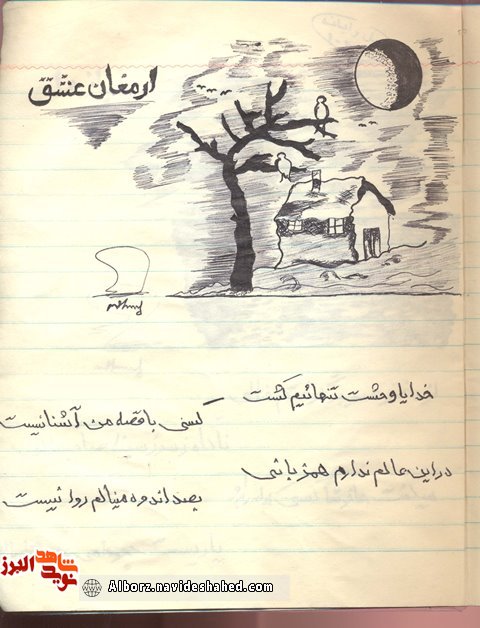 ارمغان عشق
خدایا وحشت تنهائیم کشت
کسی با قصه من آشنا نیست
در این عالم ندارم همزبانی
بصد اندوه مینالم روا نیست
شاهد
نوید
البرز
Alborz.navideshahed.com